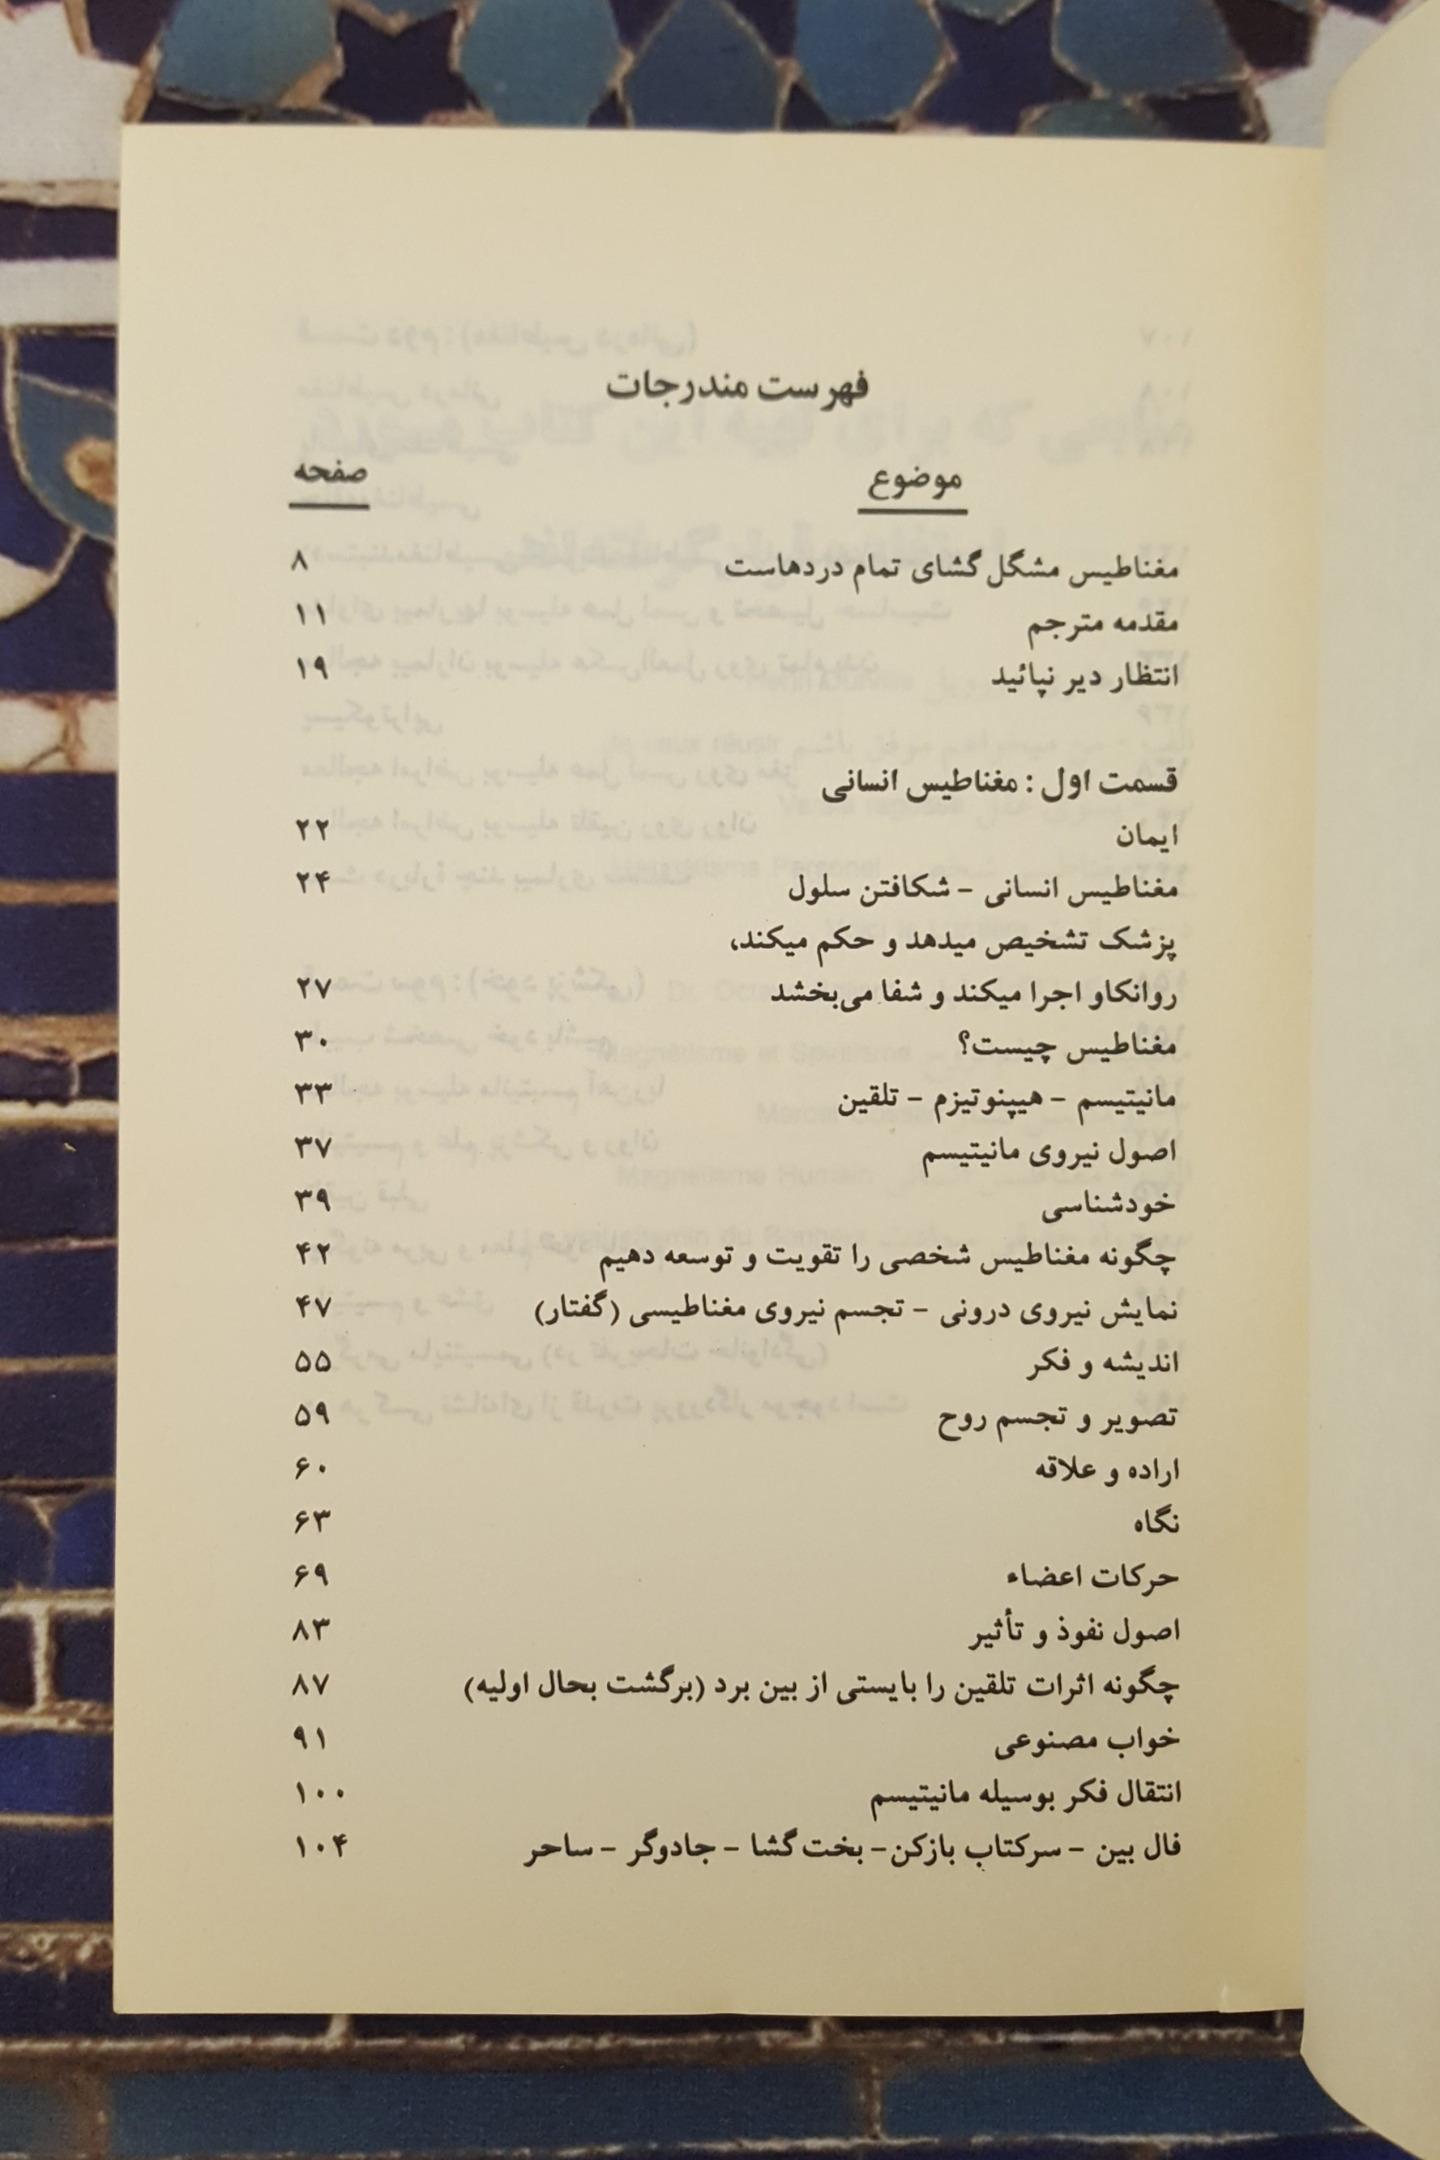 فهرست مندرجات
موضوع صفحه
مغناطیس مشگل گشای تمام دردهاست ۸
مقدمه مترجم ۱۱
انتظار دیر نپائید ۱۹
قسمت اول : مغناطیس انسانی
ایمان ۲۲
مغناطیس انسانی - شکافتن سلول ۲۴
پزشک تشخیص میدهد و حکم میکند،
روانکاو اجرا میکند و شفا می‌بخشد ۲۷
مغناطیس چیست؟ ۳۰
مانیتیسم - هیپنوتیزم - تلقین ۳۳
اصول نیروی مانیتیسم ۳۷
خودشناسی ۳۹
چگونه مغناطیس شخصی را تقویت و توسعه دهیم ۴۲
نمایش نیروی درونی - تجسم نیروی مغناطیسی (گفتار) ۴۷
اندیشه و فکر ۵۵
تصویر و تجسم روح ۵۹
اراده و علاقه ۶۰
نگاه ۶۳
حرکات اعضاء ۶۹
اصول نفوذ و تأثیر ۸۳
چگونه اثرات تلقین را بایستی از بین برد (برگشت بحال اولیه) ۸۷
خواب مصنوعی ۹۱
انتقال فکر بوسیله مانیتیسم ۱۰۰
فال بین - سرکتاب بازکن - بخت گشا - جادوگر - ساحر ۱۰۴